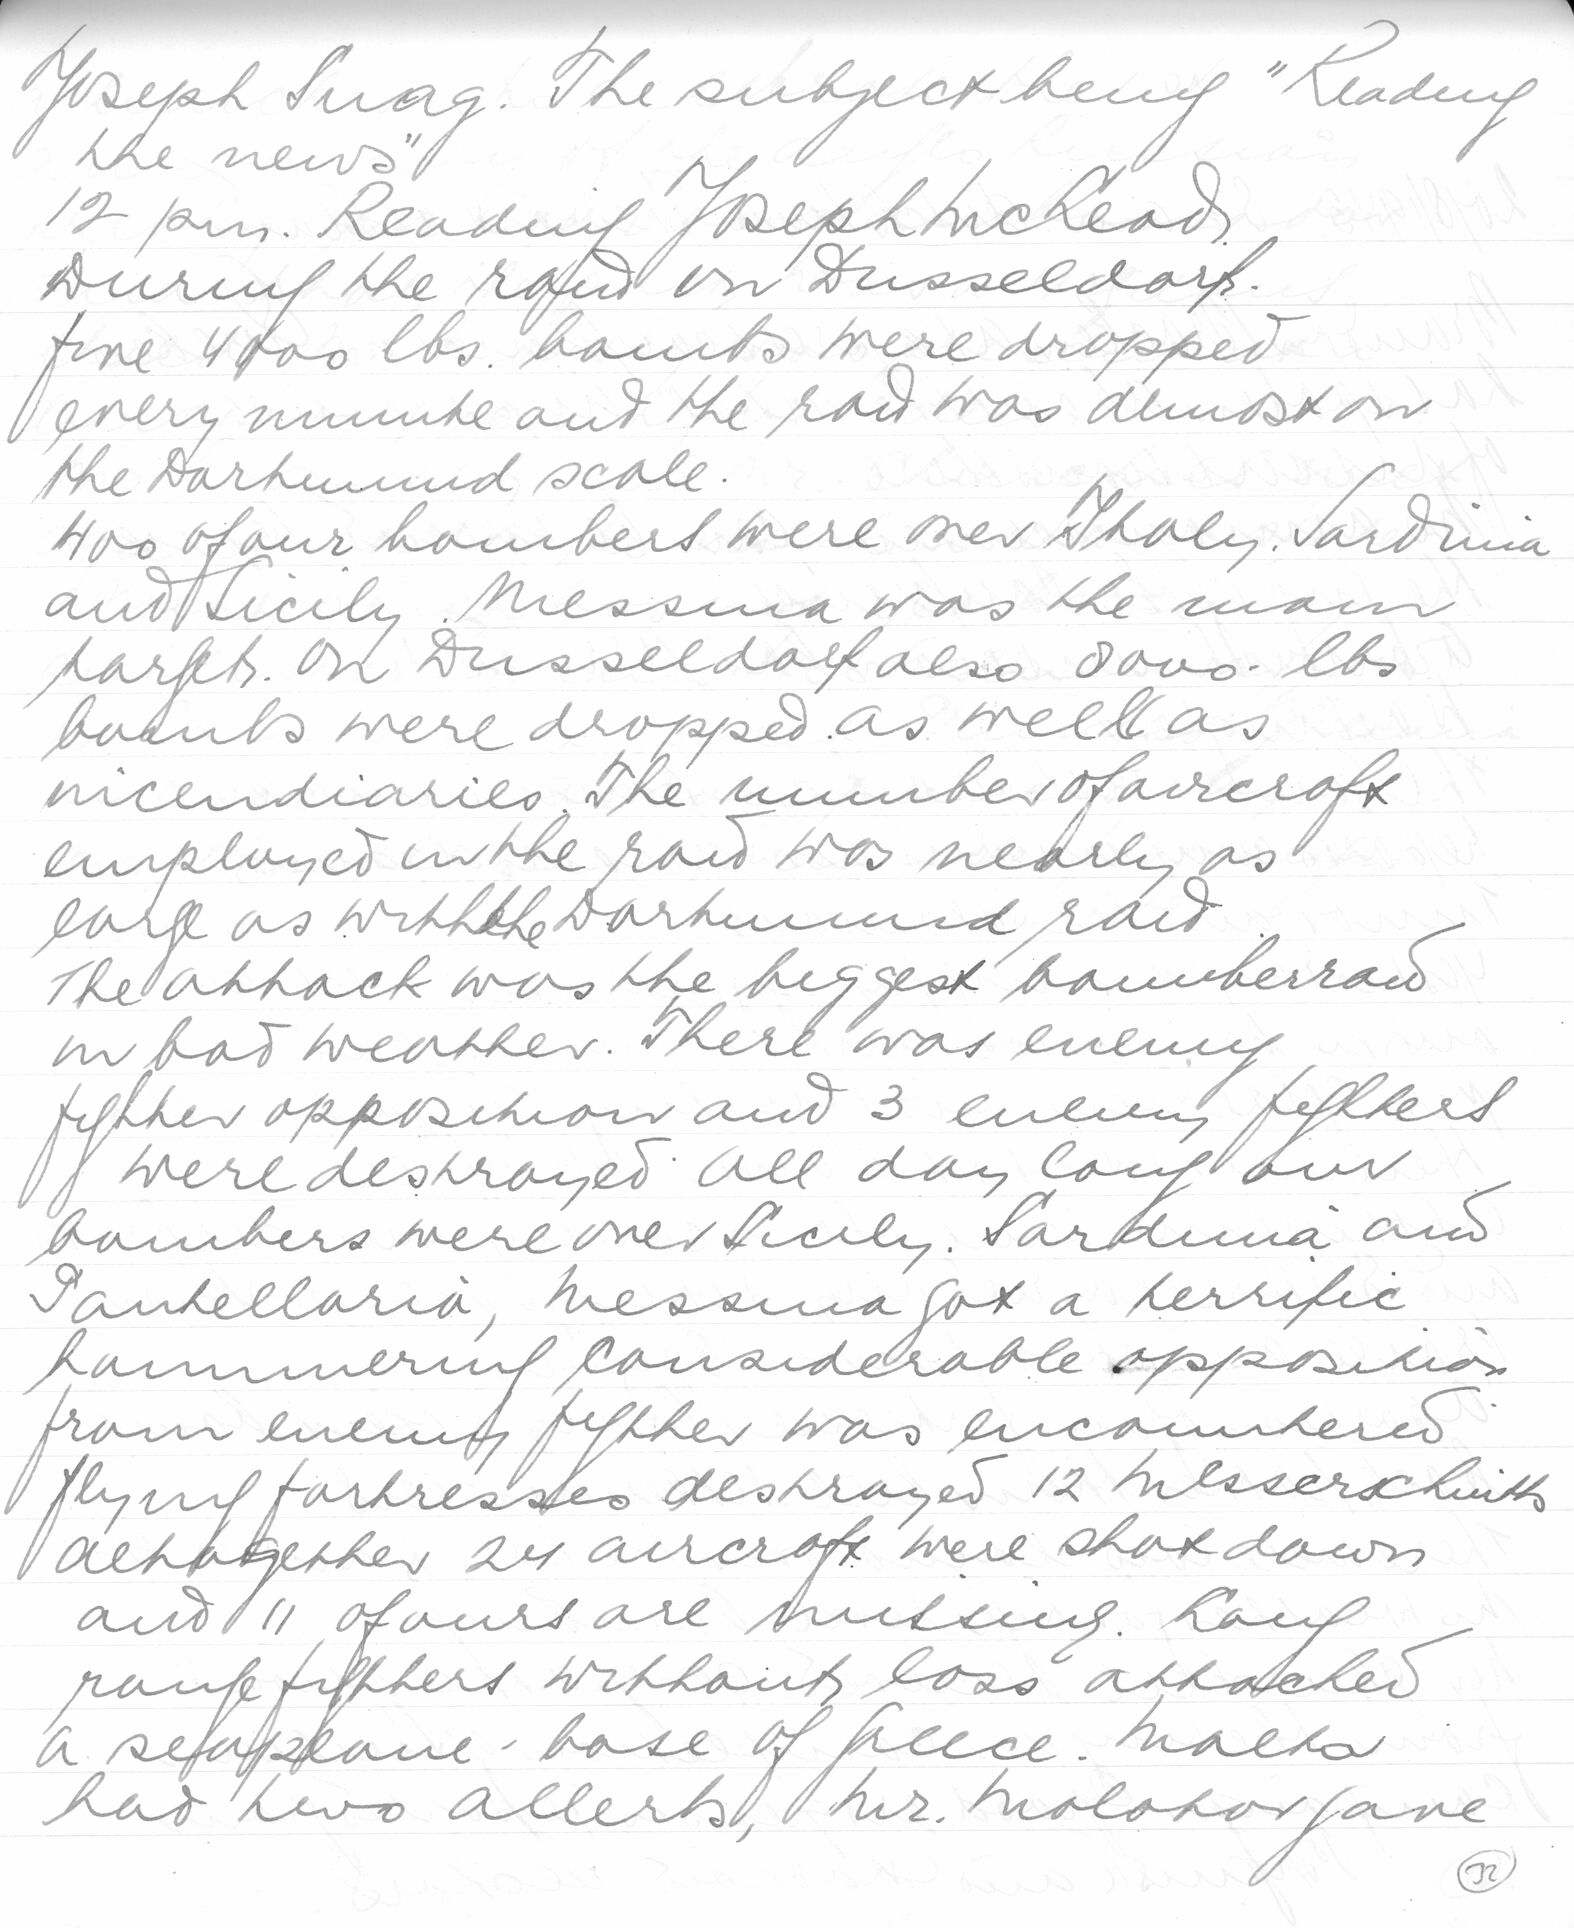 Joseph Snag. The subject being "Reading
the news"
12 pm. Reading Joseph McLeod,
During the raid on Dusseldorf.
five 4000 lbs. bombs were dropped
every minute and the raid was almost on
the Dortmund scale.
400 of our bombers were over Italy. Sardinia
and Sicily. Messina was the main
target. On Dusseldorf also 8000. lbs
bombs were dropped. as well as
incendiaries. The number of aircraft
employed in the raid was nearly as
large as with the Dortmund raid
The attack was the biggest bomberraid
in bad weather. There was enemy
fighter opposition and 3 enemy fighters
were destroyed. All day long our
bombers were over Sicily. Sardinia and
Pantellaria, Messina got a terrific
hammering Considerable opposition
from enemy fighter was encountered
flying fortresses destroyed 12 Messerschmitts
altogether 24 aircraft were shot down
and 11 of ours are missing. Long
range fighters without loss attacked
a seaplane-base of Greece. Malta
had two allerts, Mr. Molotov gave
32